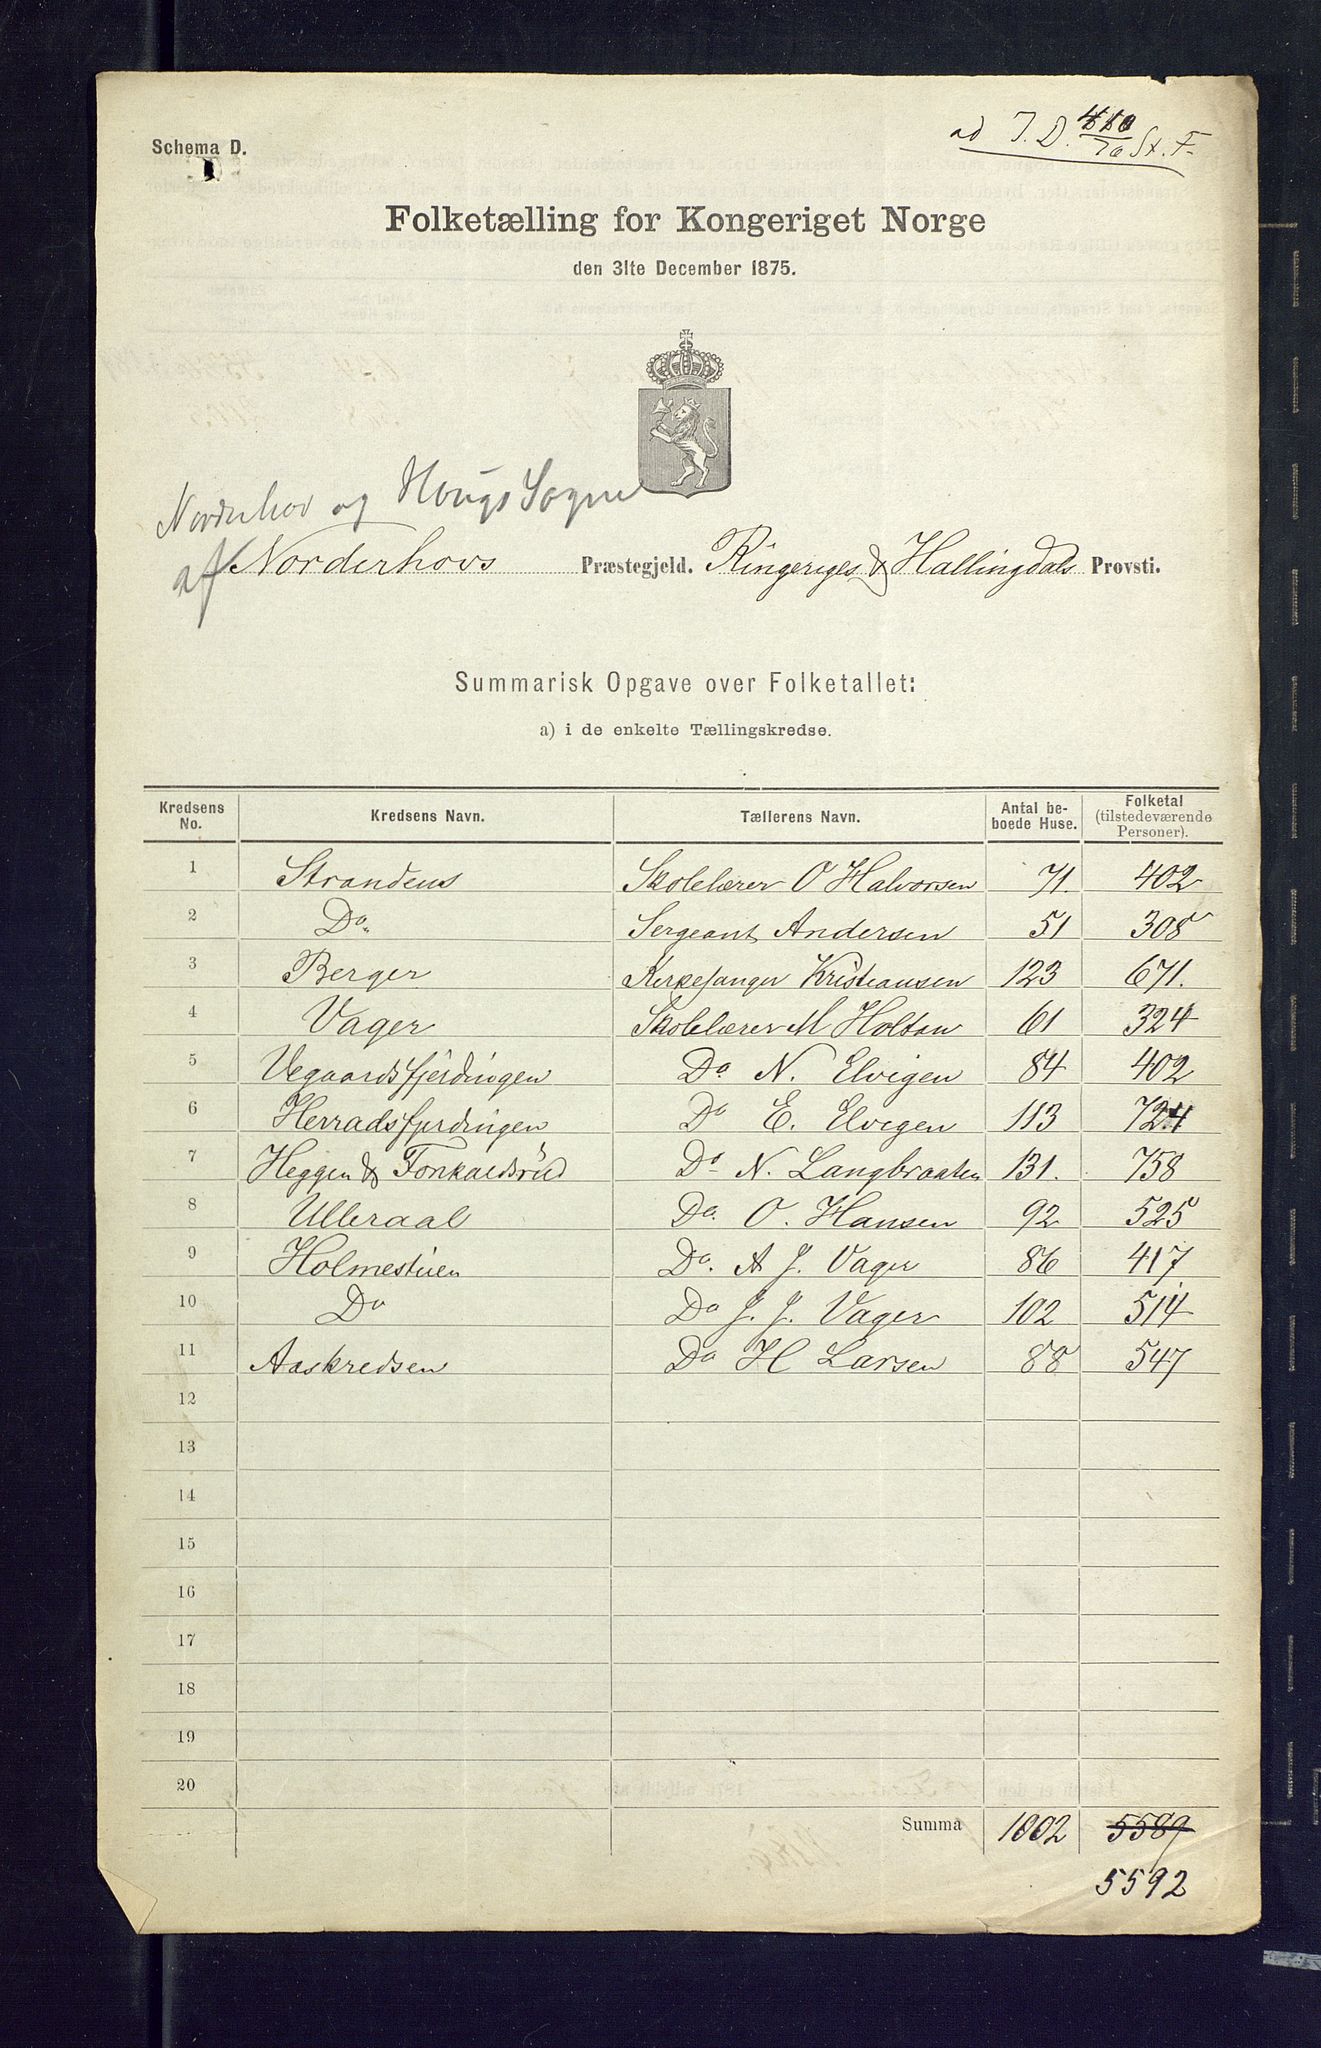 ad J. D. 460/76 St. F.
Schema D.
Folketælling for Kongeriget Norge
den 31te December 1875.
Norderhov og Hougs Sogne
af Norderhovs Præstegjeld. Ringeriges & Hallingdals Provsti.
Summarisk Opgave over Folketallet:
a) i de enkelte Tællingskredse.
Kredsens No. Kredsens Navn. Tællerens Navn. Antal beboede Huse. Folketal (tilstedeværende Personer).
1 Strandens Skolelærer O Halvorsen 71. 402
2 Do. Sergeant Andersen 51 308
3 Berger Kirkesanger Kristiansen 123 671.
4 Vager Skolelærer M Holtan 61 324
5 Vegaardsfjerdingen Do. N. Elvigen 84 402
6 Herradsfjerdingen Do E. Elvigen 113 724
7 Heggen & Do. N. Langbraaten 131. 758
8 Ulleraal Do. O. Hansen 92 525
9 Holmestuen Do. A J. Vager 86 417
10 Do Do J. J. Vager 102 514
11 Aaskredsen Do H Larsen 88 547
12
13
14
15
16
17
18
19
20
Summa 1002 5589
5592